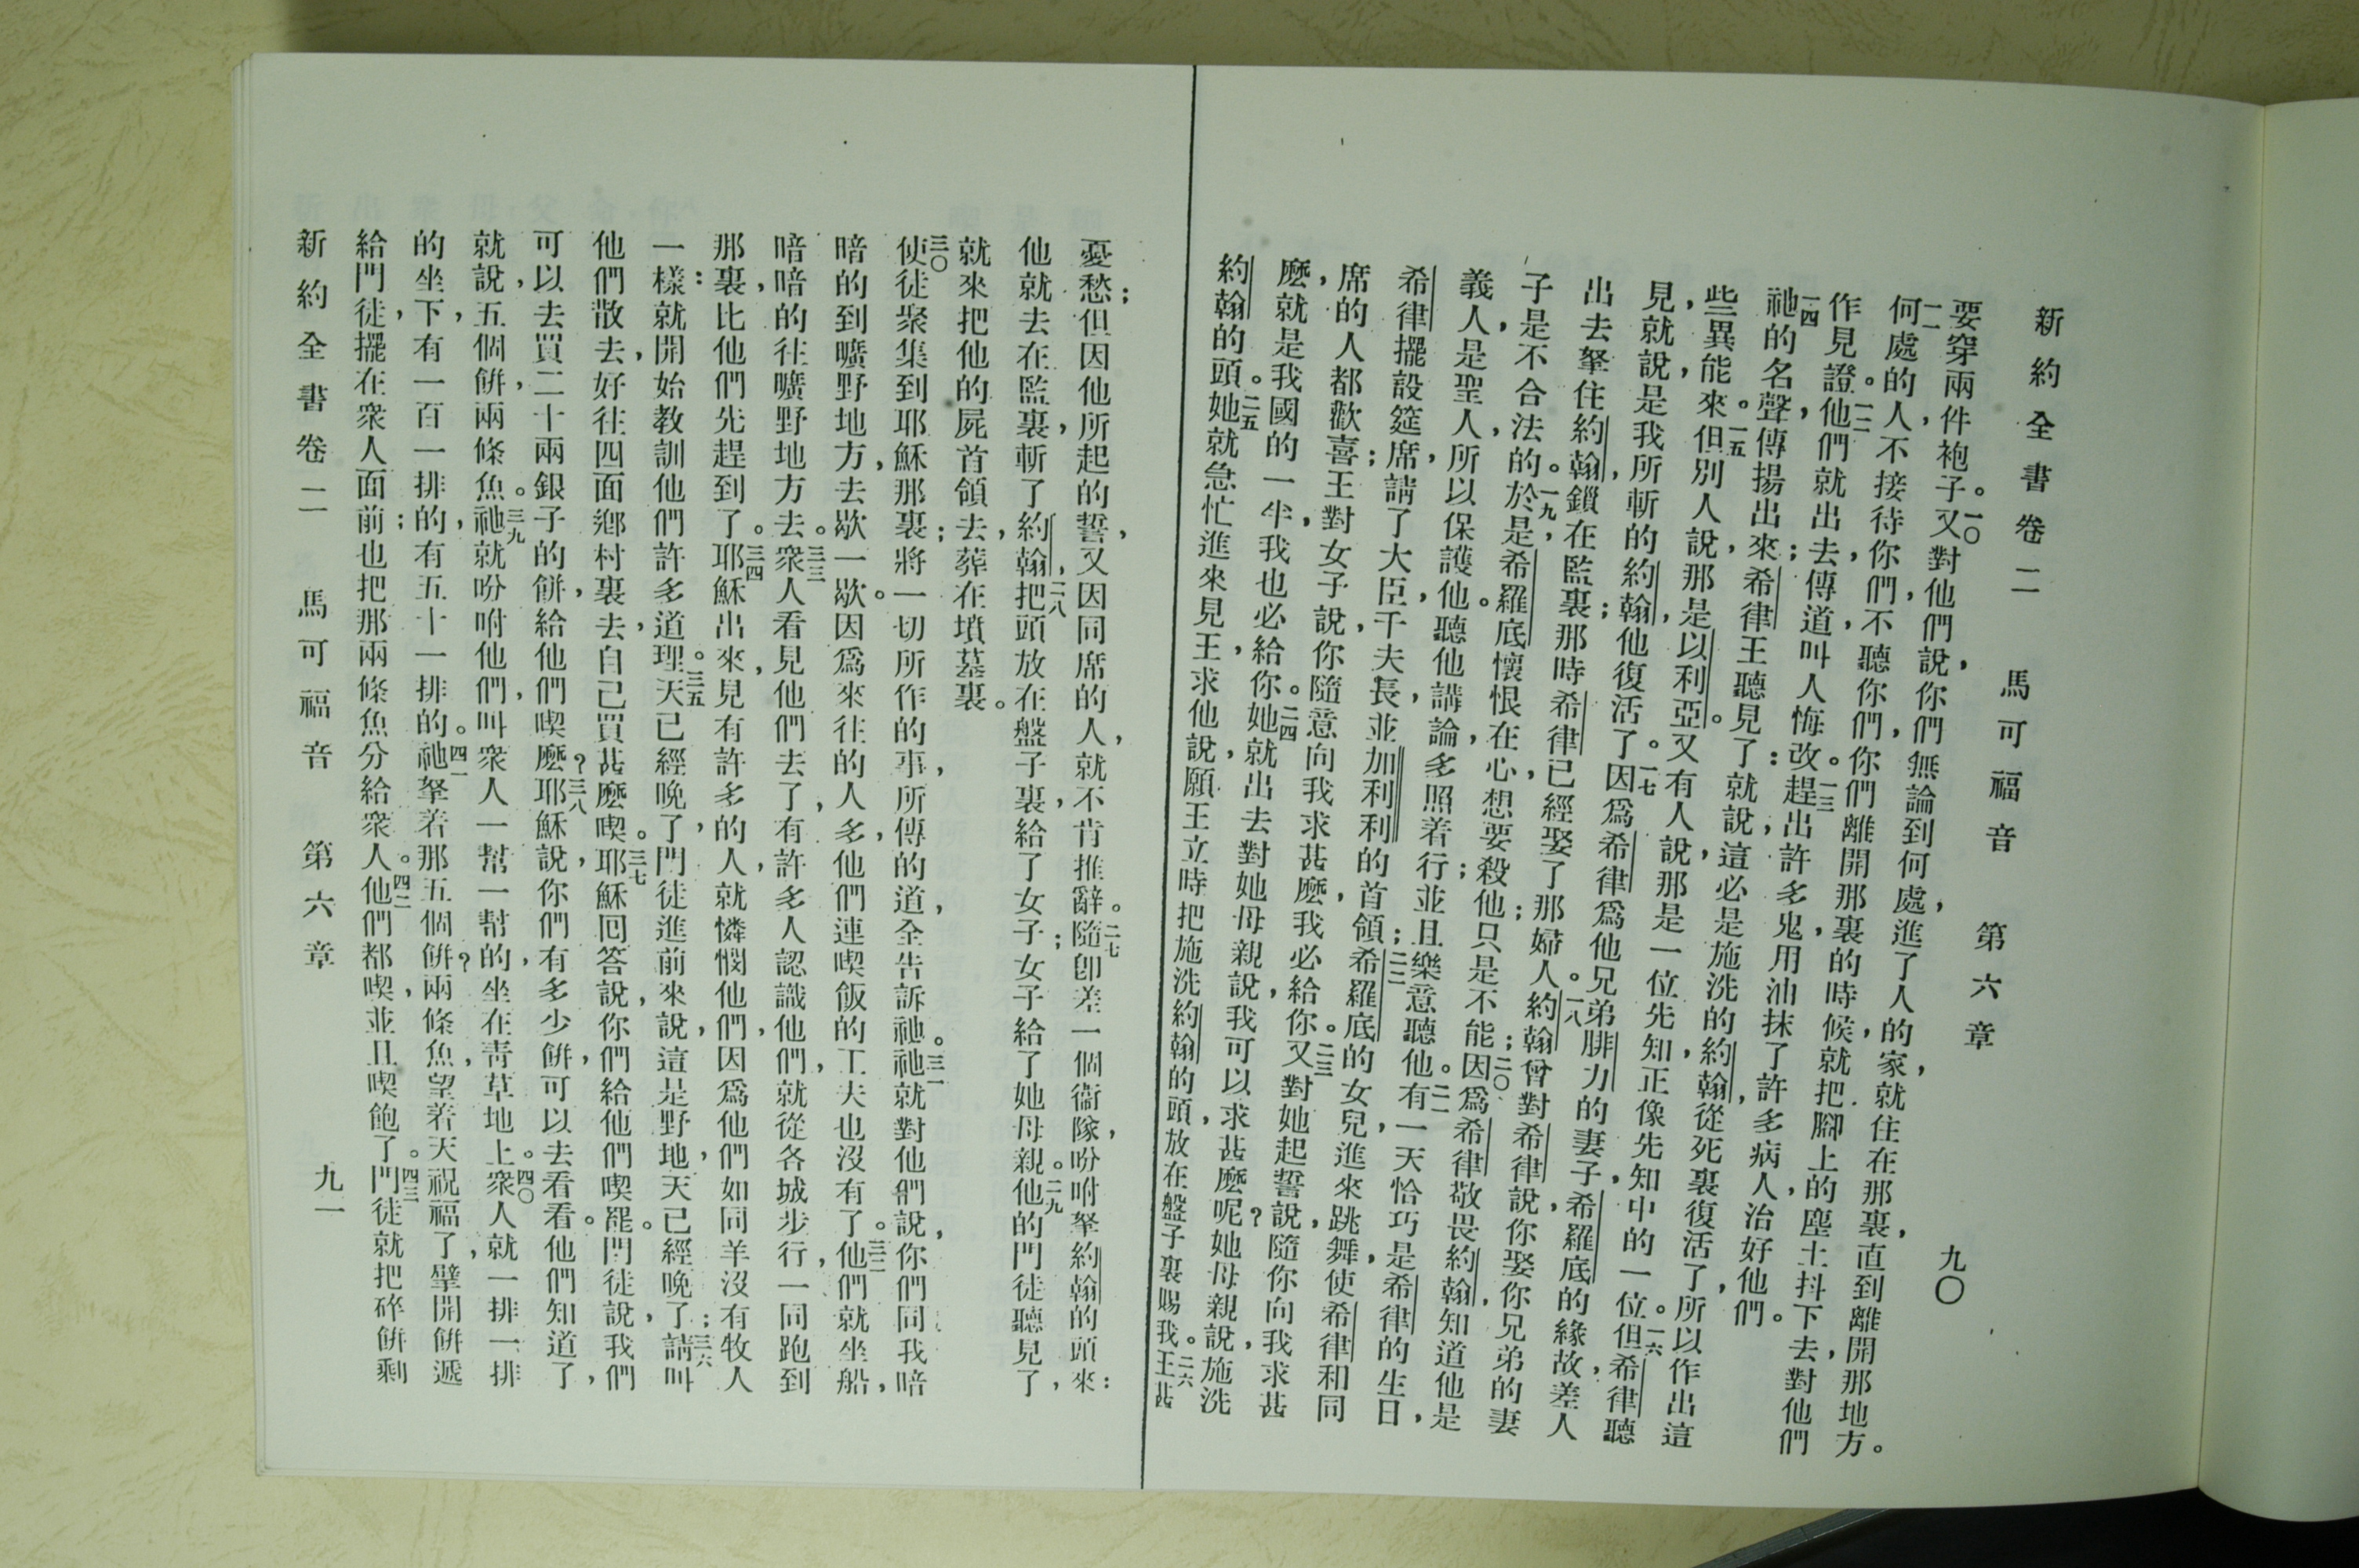 新約全書卷二 馬可福音 第六章 九〇
要穿兩件袍子。一〇又對他們說,你們無論到何處,進了人的家,就住在那裏,直到離開那地方。
一一何處的人,不接待你們,不聽你們,你們離開那裏的時候,就把腳上的塵土抖下去,對他們
作見證。一二他們就出去,傳道,叫人悔改。一三趕出許多鬼,用油抹了許多病人,治好他們。
一四祂的名聲,傳揚出來;希律王聽見了,就說:這必是施洗的約翰,從死裏復活了,所以作出這
些異能來。一五但別人說,那是以利亞。又有人說,那是一位先知,正像先知中的一位。一六但希律聽
見,就說,是我所斬的約翰,他復活了。一七因爲希律爲他兄弟腓力的妻子,希羅底的緣故,差人
出去拏住約翰,鎖在監裏;那時希律已經娶了那婦人。一八約翰曾對希律說,你娶你兄弟的妻
子,是不合法的。一九於是,希羅底懷恨在心,想要殺他;只是不能;二〇因爲希律敬畏約翰,知道他是
義人,是聖人,所以保護他。聽他講論,多照着行;並且樂意聽他。二一有一天恰巧是希律的生日,
希律擺設筵席,請了大臣,千夫長,並加利利的首領;二二希羅底的女兒進來跳舞,使希律和同
席的人都歡喜;王對女子說,你隨意向我求甚麼,我必給你。二三又對她起誓說,隨你向我求甚
麼,就是我國的一半,我也必給你。二四她就出去對她母親說,我可以求甚麼呢?她母親說,施洗
約翰的頭。二五她就急忙進來見王,求他說,願王立時把施洗約翰的頭,放在盤子裏賜我。二六王甚
憂愁;但因他所起的誓,又因同席的人,就不肯推辭。二七隨卽差一個衞隊,吩咐拏約翰的頭來:
他就去在監裏,斬了約翰,二八把頭放在盤子裏,給了女子;女子給了她母親。二九他的門徒聽見了,
就來把他的屍首領去,葬在墳墓裏。
三〇使徒聚集到耶穌那裏;將一切所作的事,所傳的道,全告訴祂。三一祂就對他們說,你們同我暗
暗的到曠野地方,去歇一歇。因爲來往的人多,他們連喫飯的工夫也沒有了。三二他們就坐船,
暗暗的往曠野地方去。三三衆人看見他們去了,有許多人認識他們,就從各城步行,一同跑到
那裏,比他們先趕到了。三四耶穌出來,見有許多的人,就憐憫他們,因爲他們如同羊沒有牧人
一樣:就開始教訓他們許多道理。三五天已經晚了,門徒進前來說,這是野地,天已經晚了;三六請叫
他們散去,好往四面鄉村裏去,自己買甚麼喫。三七耶穌囘答說,你們給他們喫罷。門徒說,我們
可以去買二十兩銀子的餅,給他們喫麼?三八耶穌說,你們有多少餅,可以去看看。他們知道了,
就說,五個餅,兩條魚。三九祂就吩咐他們,叫衆人一幫一幫的,坐在靑草地上。四〇衆人就一排一排
的坐下,有一百一排的,有五十一排的。四一祂拏着那五個餅?兩條魚,望着天祝福了,擘開餅遞
給門徒,擺在衆人面前;也把那兩條魚分給衆人。四二他們都喫,並且喫飽了。四三門徒就把碎餅剩
新約全書卷二 馬可福音 第六章 九一